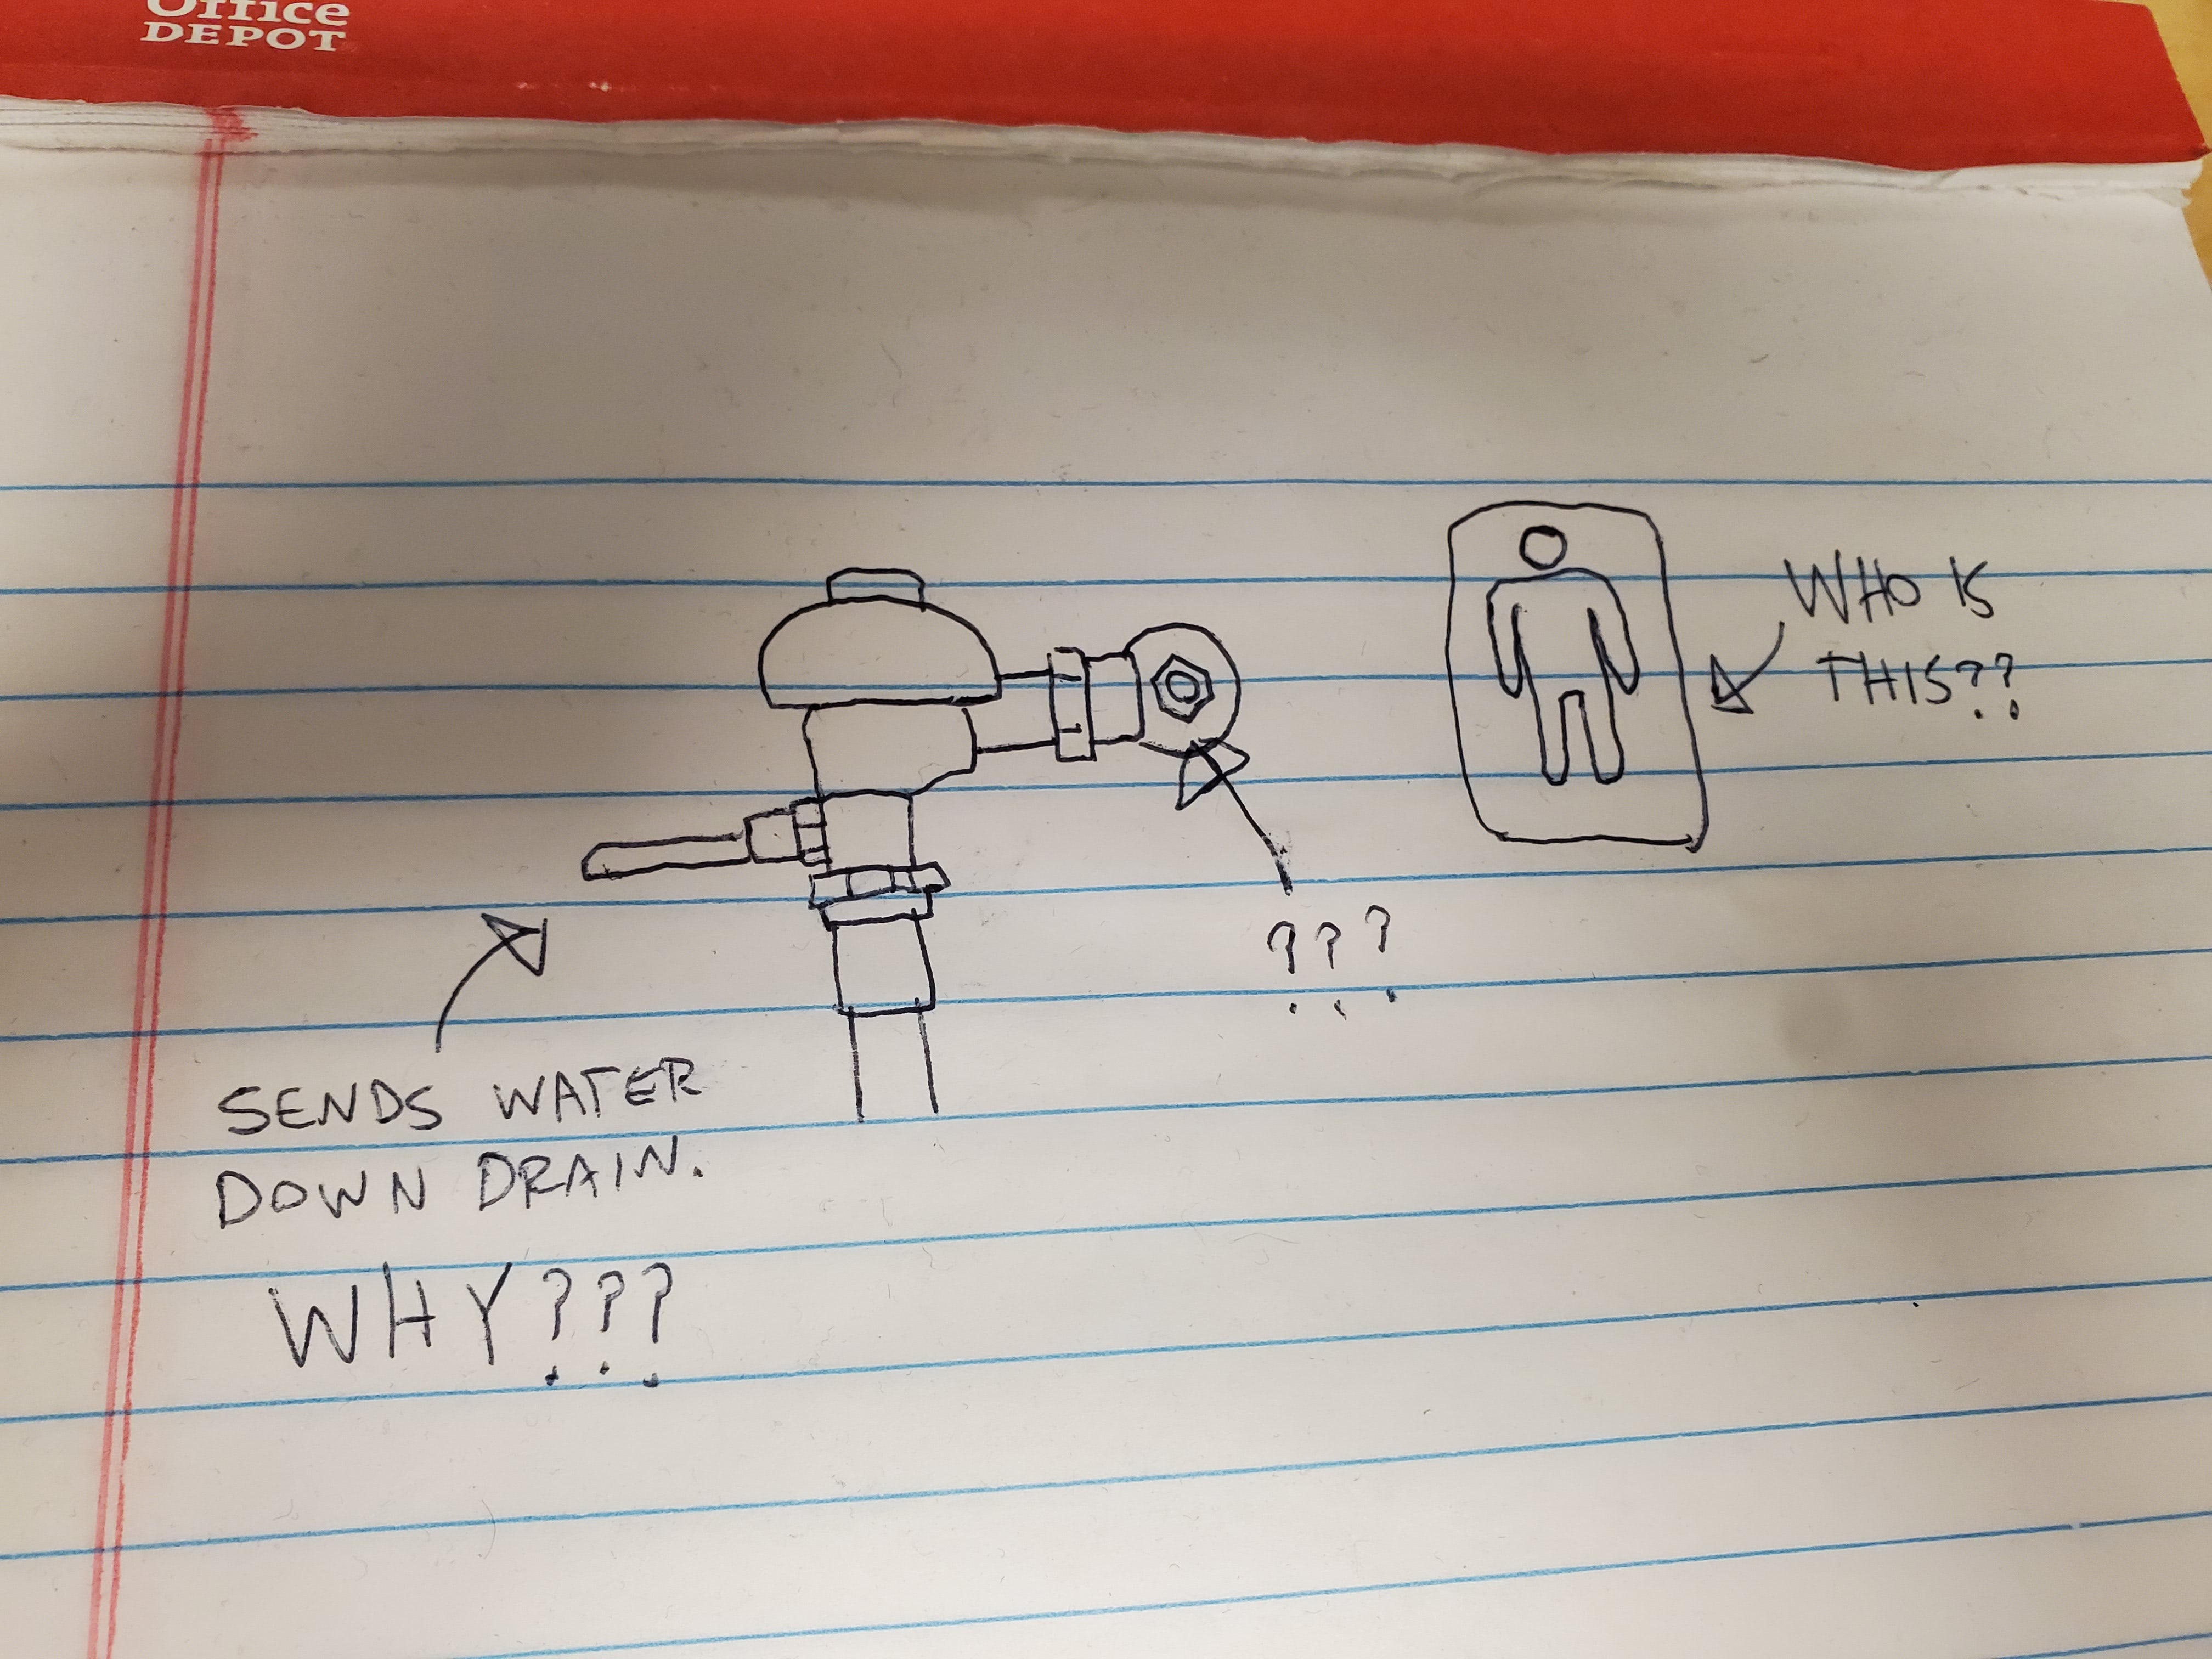 Office
DEPOT
WHO IS
THIS??
???
SENDS WATER
DOWN DRAIN.
WHY???